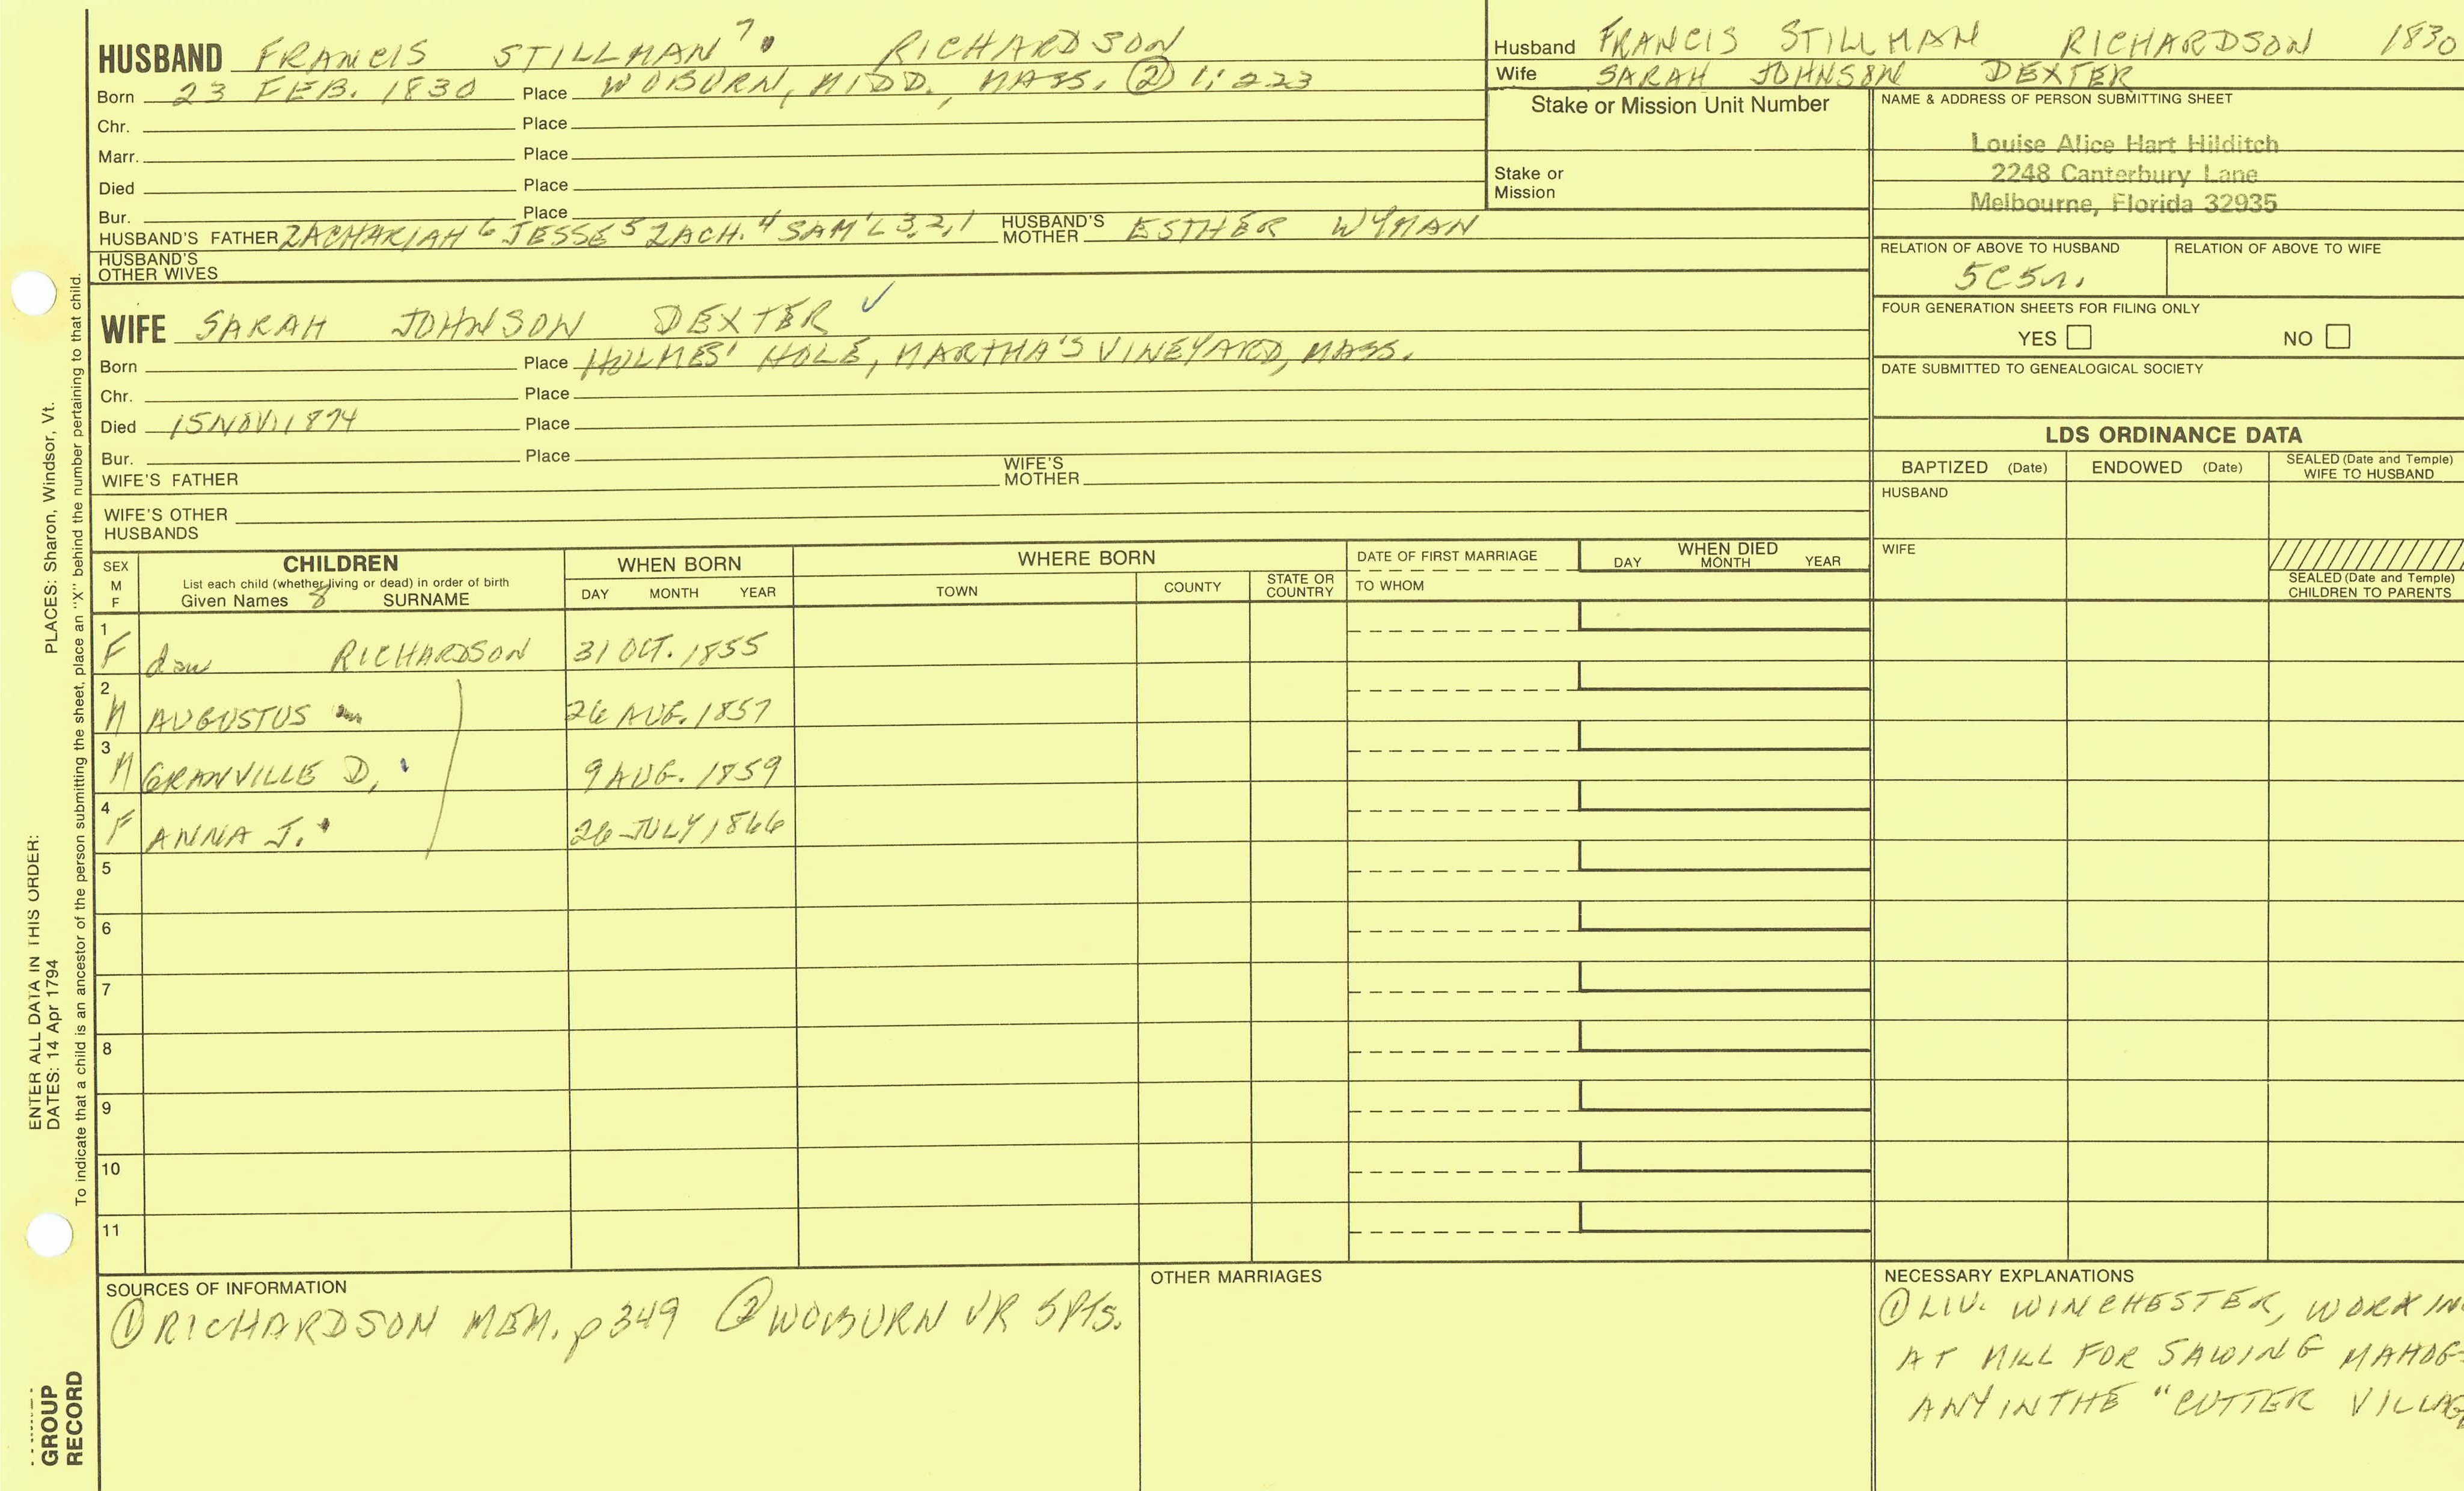 HUSBAND FRANCIS STILLMAN 7. RICHARDSON
Born 23 FEB. 1830 Place WOBURN, MIDD., MASS. ② 1:223
Chr. Place
Marr. Place
Died Place
Bur. Place
HUSBAND'S FATHER ZACHARIAH 6 JESSE 5 ZACH. 4 SAM'L 3,2,1 HUSBAND'S MOTHER ESTHER WYMAN
HUSBAND'S OTHER WIVES
WIFE SARAH JOHNSON DEXTER ✓
Born Place HOLMES' HOLE, MARTHA'S VINEYARD, MASS.
Chr. Place
Died 15 NOV. 1874 Place
Bur. Place
WIFE'S FATHER WIFE'S MOTHER
WIFE'S OTHER HUSBANDS
Husband FRANCIS STILLMAN RICHARDSON 1830
Wife SARAH JOHNSON DEXTER
Stake or Mission Unit Number
Stake or Mission
NAME & ADDRESS OF PERSON SUBMITTING SHEET
Louise Alice Hart Hilditch
2248 Canterbury Lane
Melbourne, Florida 32935
RELATION OF ABOVE TO HUSBAND RELATION OF ABOVE TO WIFE
5C5r.
FOUR GENERATION SHEETS FOR FILING ONLY
YES NO
DATE SUBMITTED TO GENEALOGICAL SOCIETY
LDS ORDINANCE DATA
BAPTIZED (Date) ENDOWED (Date) SEALED (Date and Temple) WIFE TO HUSBAND
HUSBAND
WIFE
SEALED (Date and Temple) CHILDREN TO PARENTS
SEX M F
CHILDREN
List each child (whether living or dead) in order of birth
Given Names 8 SURNAME
WHEN BORN
DAY MONTH YEAR
WHERE BORN
TOWN COUNTY STATE OR COUNTRY
DATE OF FIRST MARRIAGE
TO WHOM
WHEN DIED
DAY MONTH YEAR
1 F dau RICHARDSON 31 OCT. 1855
2 M AUGUSTUS 26 AUG. 1857
3 M GRANVILLE D. 9 AUG. 1859
4 F ANNA J. 26 JULY 1866
5
6
7
8
9
10
11
SOURCES OF INFORMATION
① RICHARDSON MEM. p349 ② WOBURN VR 5 Pts.
OTHER MARRIAGES
NECESSARY EXPLANATIONS
① LIV. WINCHESTER, WORKIN
AT MILL FOR SAWING MAHOG-
ANY IN THE "CUTTER VILLAG
ENTER ALL DATA IN THIS ORDER:
DATES: 14 Apr 1794 PLACES: Sharon, Windsor, Vt.
To indicate that a child is an ancestor of the person submitting the sheet, place an "X" behind the number pertaining to that child.
GROUP
RECORD